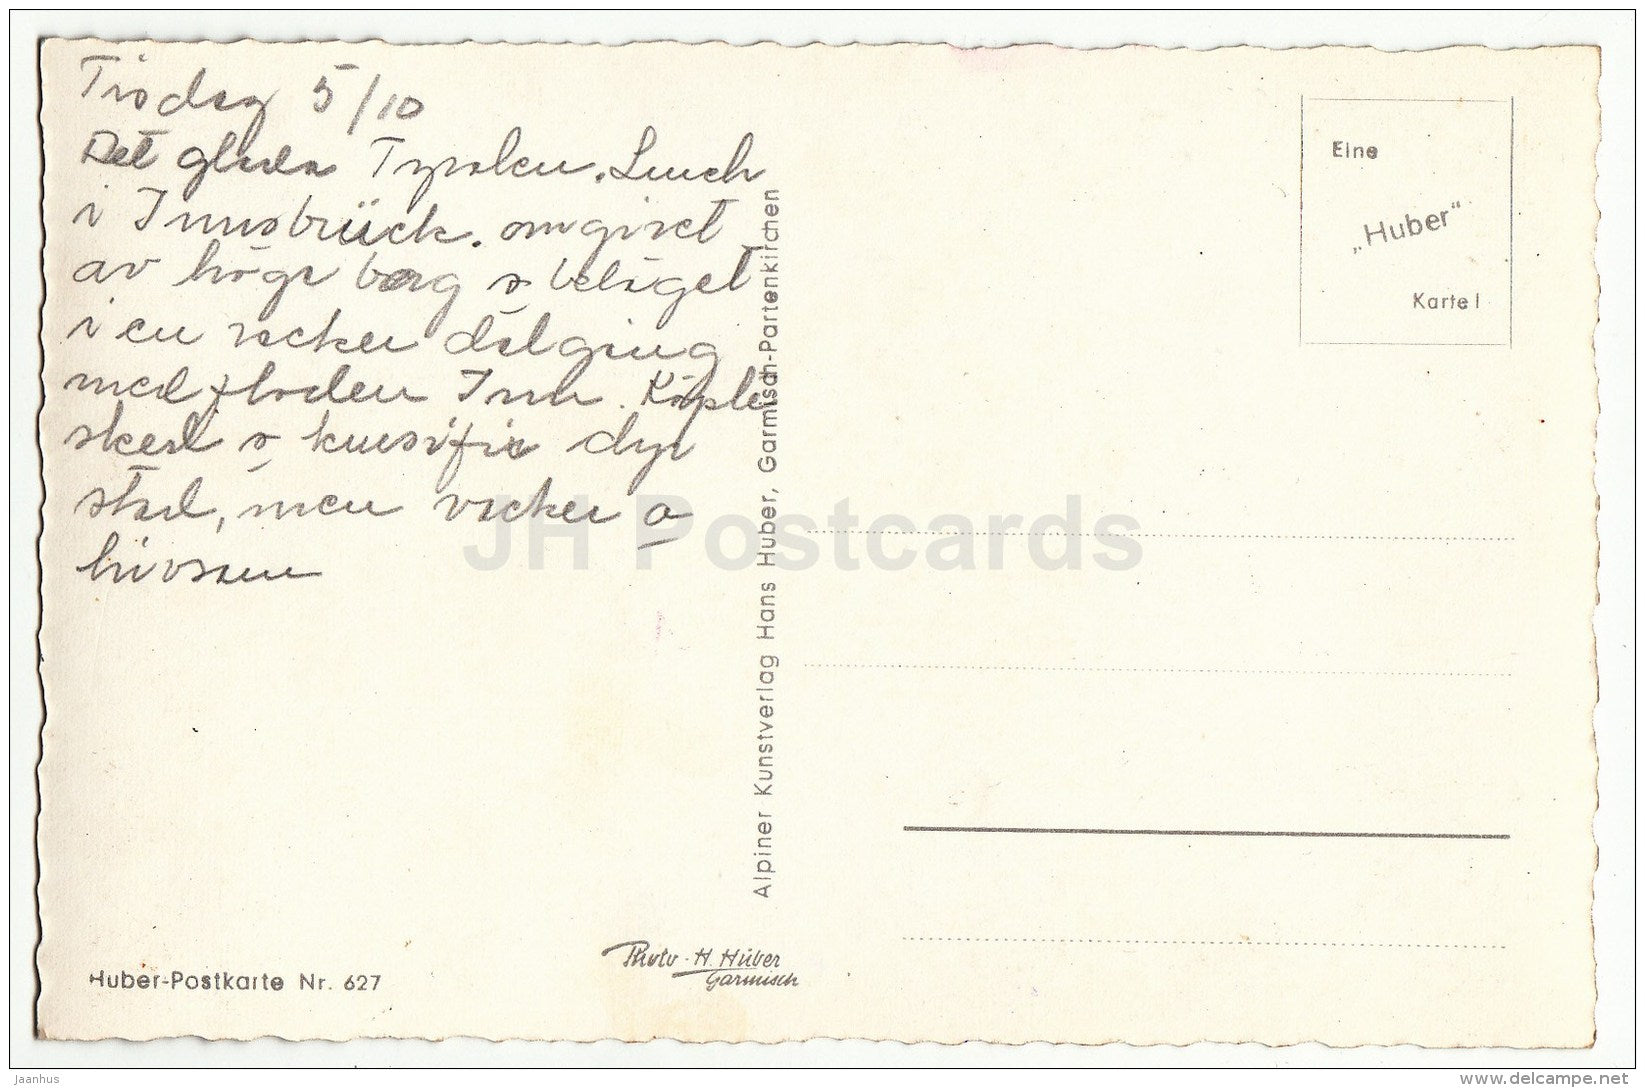 Tisdag 5/10
Det glada Tyrolen. Lunch
i Innsbrück. omgivet
av höga berg o beläget
i en vacker dalgång
med floden Inn.
o dyr
stad, men vacker o
livsam
Eine
„Huber“
Karte!
Alpiner Kunstverlag Hans Huber, Garmisch-Partenkirchen
JH Postcards
Huber-Postkarte Nr. 627
Photo - H. Huber
Garmisch
jaanhus
www.delcampe.net